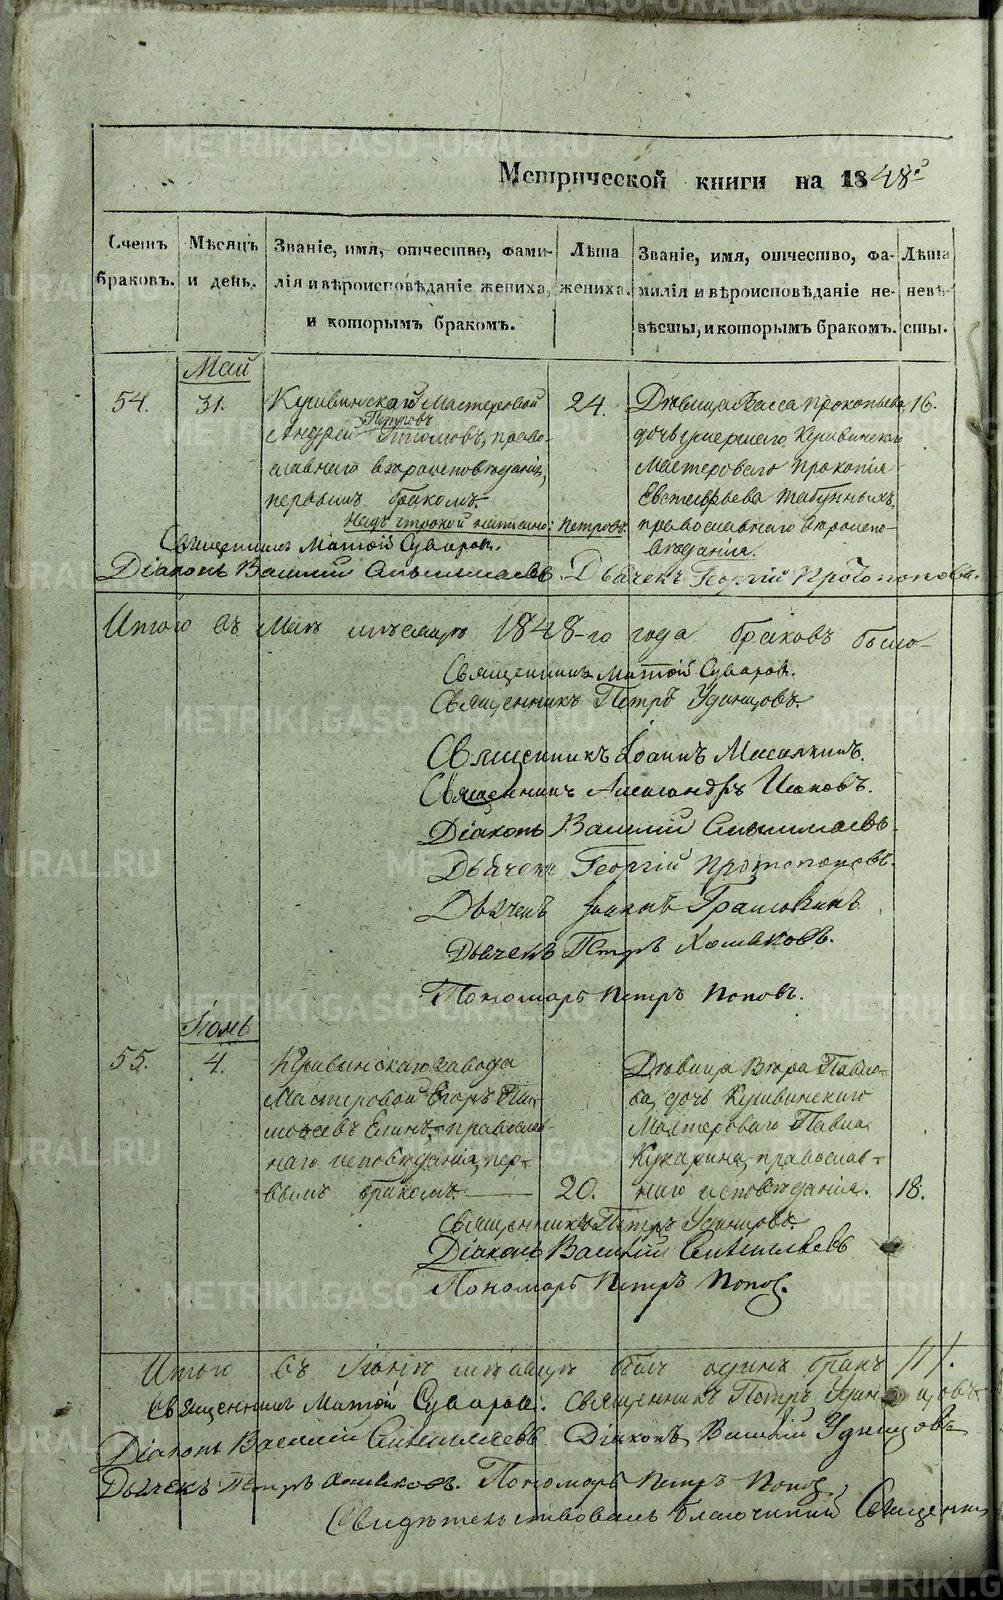 Метрической книги на 1848й
Счетъ браковъ.
Мѣсяцъ и день.
Званіе, имя, отчество, фами-
лія и вѣроисповѣданіе жениха,
и которымъ бракомъ.
Лѣта жениха.
Званіе, имя, отчество, фа-
милія и вѣроисповѣданіе не-
вѣсты, и которымъ бракомъ.
Лѣта невѣ-
сты.
Май
54.
31.
Кушвинскаго Мастеровой
Петровъ
Андрей православнаго
вѣроисповѣданія,
первымъ бракомъ.
Надъ строкой написано: Петровъ.
24.
Дѣвица Васса Прокопьева,
дочь умершего Кушвинскаго
Мастероваго Прокопія
Евстафьева
православнаго вѣроиспо-
вѣданія.
16.
Священникъ Матѳій Суворовъ.
Діаконъ Василій Дьячекъ Георгій Протопоповъ.
Итого въ Маѣ мѣсяцѣ 1848-го года браковъ было
Священникъ Матѳій Суворовъ.
Священникъ Петръ Удинцовъ.
Священникъ Іоаннъ
Священникъ Александръ
Діаконъ Василій
Дьячекъ Георгій Протопоповъ.
Дьячекъ Іоаннъ
Дьячекъ Петръ Хомяковъ.
Пономарь Петръ Поповъ.
Іюнь
55.
4.
Кушвинскаго завода
Мастеровой Егоръ Ти-
моѳеевъ православ-
наго исповѣданія, пер-
вымъ бракомъ.
20.
Дѣвица Вѣра Павло-
ва, дочь Кушвинскаго
Мастероваго Павла
православ-
наго исповѣданія.
18.
Священникъ Петръ Удинцовъ.
Діаконъ Василій
Пономарь Петръ Поповъ.
Итого въ Іюнѣ мѣсяцѣ былъ одинъ бракъ /1/.
Священникъ Матѳій Суворовъ. Священникъ Петръ Удинцовъ.
Діаконъ Василій Діаконъ Василій Удинцовъ
Дьячекъ Петръ Хомяковъ. Пономарь Петръ Поповъ,
Свидѣтельствовалъ Благочинный Священникъ
METRIKI.GASO-URAL.RU